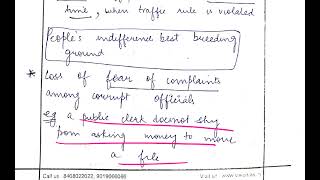 time, when traffic rule is violated
People's indifference best breeding
ground
* Loss of fear of complaints
among corrupt officials
eg a public clerk doesnot shy
from asking money to move
a file
Call us : 8468022022, 9019066066
Visit us : www.visionias.in